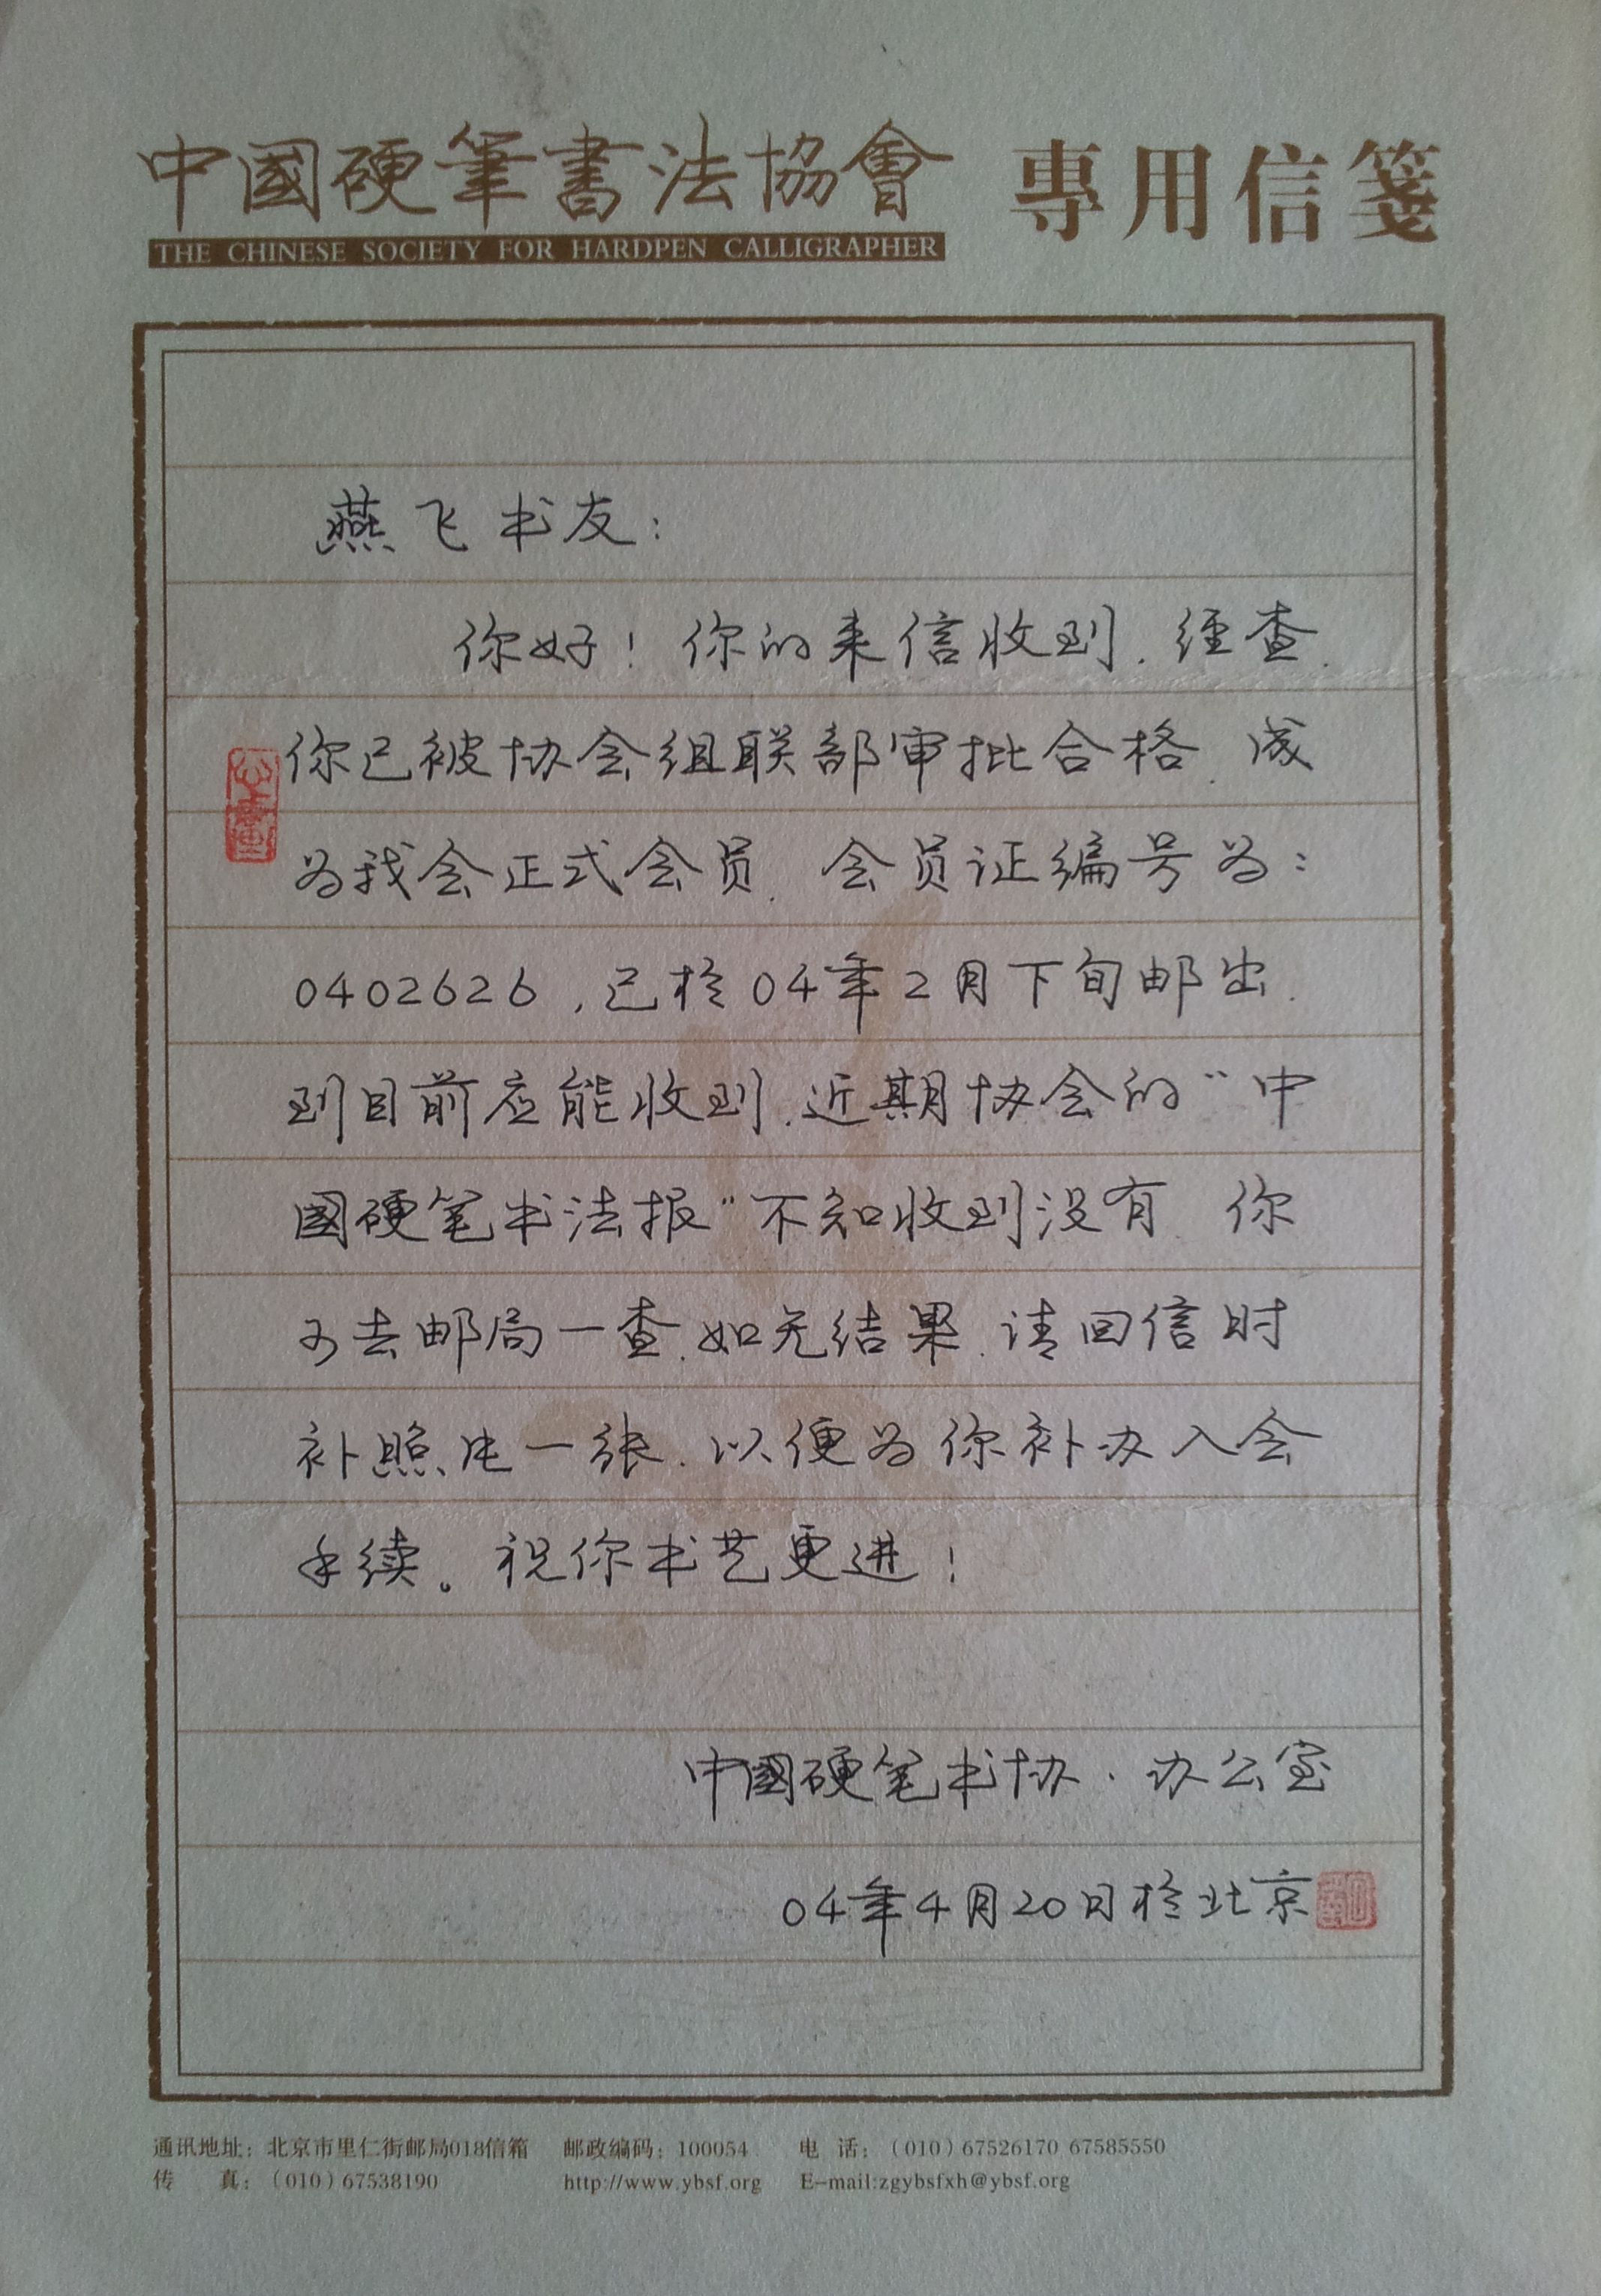 中國硬筆書法協會 專用信箋
THE CHINESE SOCIETY FOR HARDPEN CALLIGRAPHER
燕飞书友：
你好！你的来信收到.经查.
你已被协会组联部审批合格.成
为我会正式会员.会员证编号为：
0402626，已於04年2月下旬邮出.
到目前应能收到.近期协会的“中
國硬笔书法报”不知收到没有.你
可去邮局一查.如无结果.请回信时
补照片一张.以便为你补办入会
手续。祝你书艺更进！
中國硬笔书协·办公室
04年4月20日於北京
通讯地址：北京市里仁街邮局018信箱 邮政编码：100054 电 话：（010）67526170 67585550
传 真：（010）67538190 http://www.ybsf.org E-mail:zgybsfxh@ybsf.org